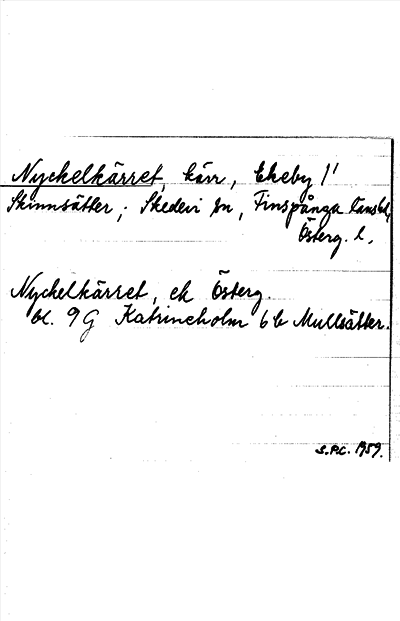 Nyckelkärret, kärr, Ekeby 1'
Skinnsätter; Skedevi sn, Finspånga länshd,
Österg. l.
Nyckelkärret, ek Österg.
bl. 9 G Katrineholm 6 b Mullsätter.
S.P.C. 1959.